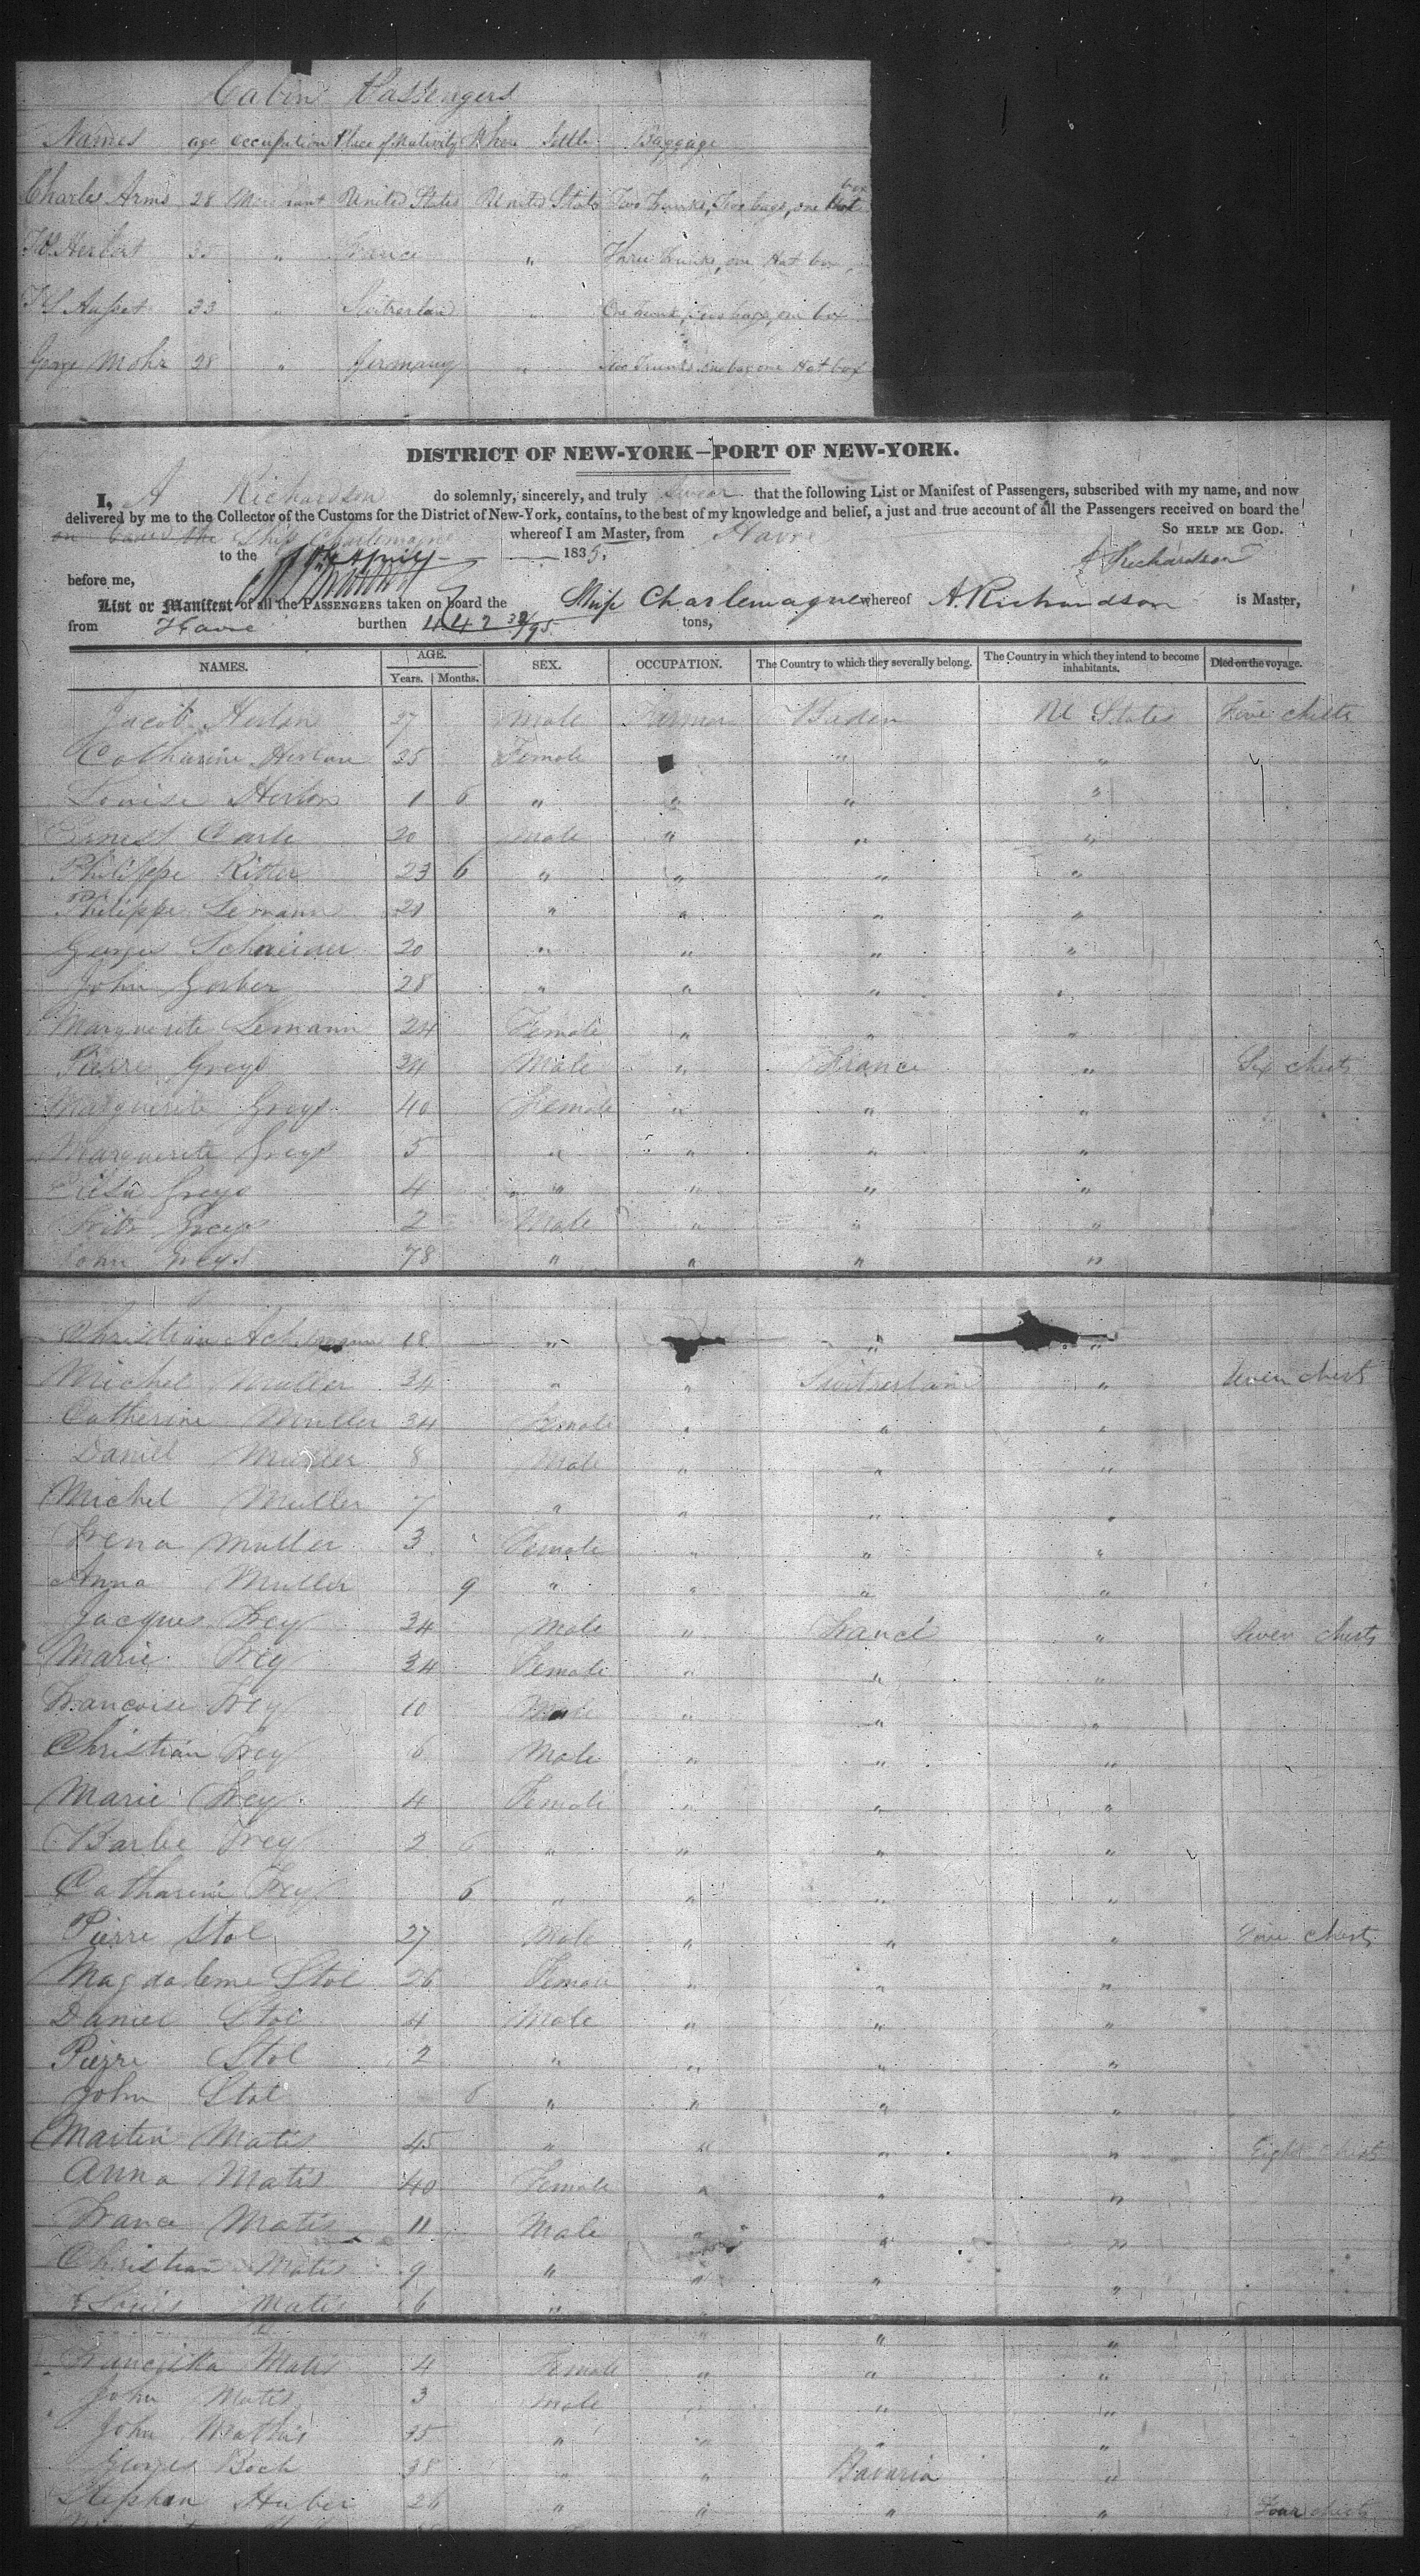 Cabin Passengers
Names age occupation Place of Nativity Where Settle Baggage
Charles Arms 28 Merchant United States United States Two Trunks, Two bags, one Hat box
Herbert 35 " France " Three trunks, one Hat box
33 " Switzerland " One trunk, bags, one box
George Mohr 28 " Germany " Two Trunks one bag one Hat box
DISTRICT OF NEW-YORK—PORT OF NEW-YORK.
I, A Richardson do solemnly, sincerely, and truly swear that the following List or Manifest of Passengers, subscribed with my name, and now
delivered by me to the Collector of the Customs for the District of New-York, contains, to the best of my knowledge and belief, a just and true account of all the Passengers received on board the
on board the Ship Charlemagne whereof I am Master, from Havre SO HELP ME GOD.
to the April 1835. A Richardson
before me,
List or Manifest of all the PASSENGERS taken on board the Ship Charlemagne whereof A. Richardson is Master,
from Havre burthen 442 32/95 tons,
NAMES. AGE. SEX. OCCUPATION. The Country to which they severally belong. The Country in which they intend to become inhabitants. Died on the voyage.
Years. Months.
Jacob Herlan 27 Male Farmer Baden U States Five chests
Catharine Herlan 25 Female " "
Louise Herlan 1 6 " " " "
Ernest Carle 20 Male " " "
Philippe Ritter 23 6 " " " "
Philippe Lemann 21 " " " "
Georges Schneider 20 " " " "
John Gerber 28 " " " "
Marguerite Lemann 24 Female " " "
Pierre Greys 34 Male " France " Six chests
Marguerite Greys 40 Female " " "
Marguerite Greys 5 " " " "
Greys 4 " " " "
Greys 2 Male " " "
John Greys 78 " " " "
Christian 18 " " "
Michel Muller 34 " " Switzerland " Seven chests
Catherine Muller 34 Female " " "
Daniel Muller 8 Male " " "
Michel Muller 7 " " " "
Muller 3 Female " " "
Anna Muller 9 " " " "
Jacques Frey 34 Male " France " Seven chests
Marie Frey 34 Female " " "
Francoise Frey 10 Male " " "
Christian Frey 6 Male " " "
Marie Frey 4 Female " " "
Barbe Frey 2 6 " " " "
Catharine Frey 6 " " " "
Pierre Stol 27 Male " " " chests
Magdaleine Stol 26 Female " " "
Daniel Stol 4 Male " " "
Pierre Stol 2 " " " "
John Stol 8 " " " "
Martin Matis 45 " " " " Eight chests
Anna Matis 40 Female " " "
Matis 11 Male " " "
Christian Matis 9 " " " "
Louis Matis 6 "
" " "
Franciska Matis 4 Female " " "
John Matis 3 Male " " "
John Mathis 35 " " " "
Georges Boch 38 " " Bavaria "
Stephan Huber 26 " " " " Four chests